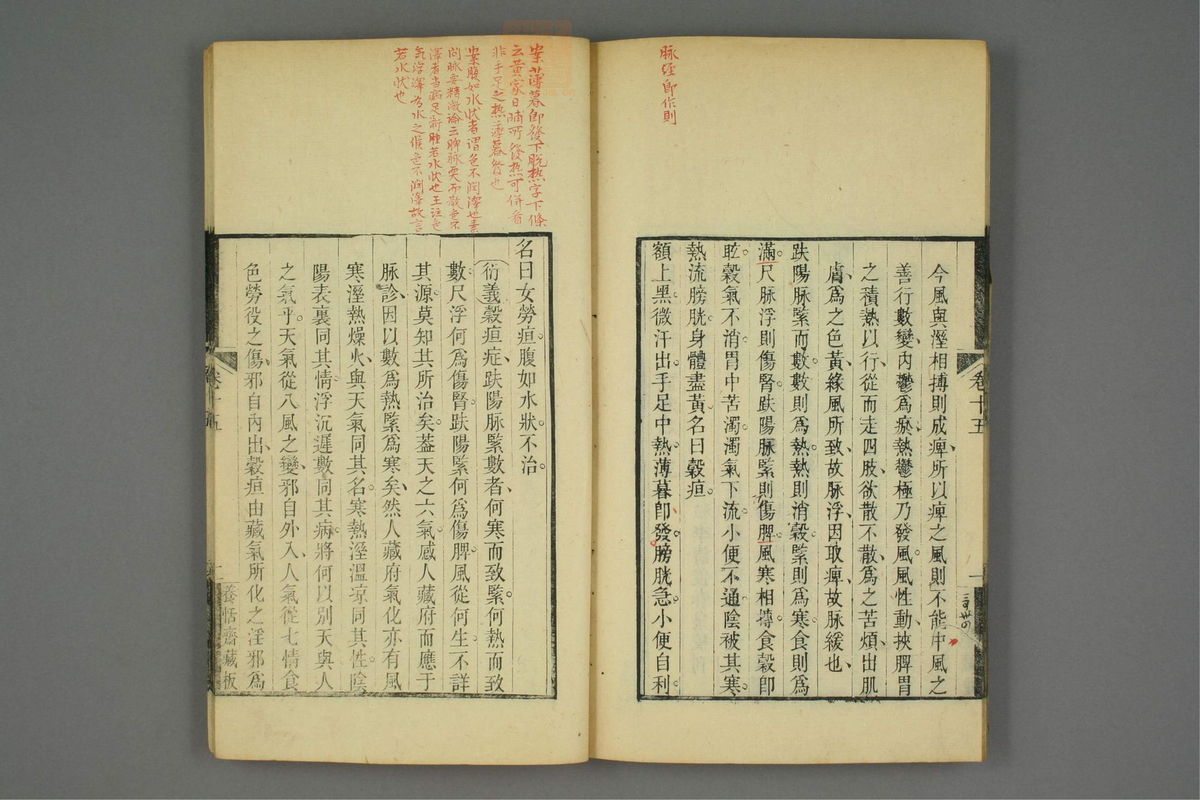 脉經即作則
今風與溼相搏則成痺所以痺之風則不能中風之
善行數變內鬱爲瘀熱鬱極乃發風風性動挾脾胃
之積熱以行從而走四肢欲散不散爲之苦煩出肌
膚爲之色黃緣風所致故脉浮因取痺故脉緩也
趺陽脉緊而數數則爲熱熱則消穀緊則爲寒食則爲
滿尺脉浮則傷腎趺陽脉緊則傷脾風寒相摶食穀卽
眩穀氣不消胃中苦濁濁氣下流小便不通陰被其寒
熱流膀胱身體盡黃名曰穀疸
額上黑微汗出手足中熱薄暮卽發膀胱急小便自利
卷十五
一
案薄暮卽發下脫熱字下條
云黃家日晡所發熱可併看
非手足之熱薄暮發也
案腹如水狀者謂色不潤澤也素
問脉要精微論云脾脉耎而散色不
澤者當病足䯒腫若水狀也王注色
氣浮澤爲水之候色不潤澤故言
若水狀也
名曰女勞疸腹如水狀不治
衍義穀疸症趺陽脉緊數者何寒而致緊何熱而致
數尺浮何爲傷腎趺陽緊何爲傷脾風從何生不詳
其源莫知其所治矣蓋天之六氣感人藏府而應于
脉診因以數爲熱緊爲寒矣然人藏府氣化亦有風
寒溼熱燥火與天氣同其名寒熱溼溫凉同其性陰
陽表裏同其情浮沉遲數同其病將何以別天與人
之氣乎天氣從八風之變邪自外入人氣從七情食
色勞役之傷邪自內出穀疸由藏氣所化之淫邪爲
卷十五
二
養恬齋藏板